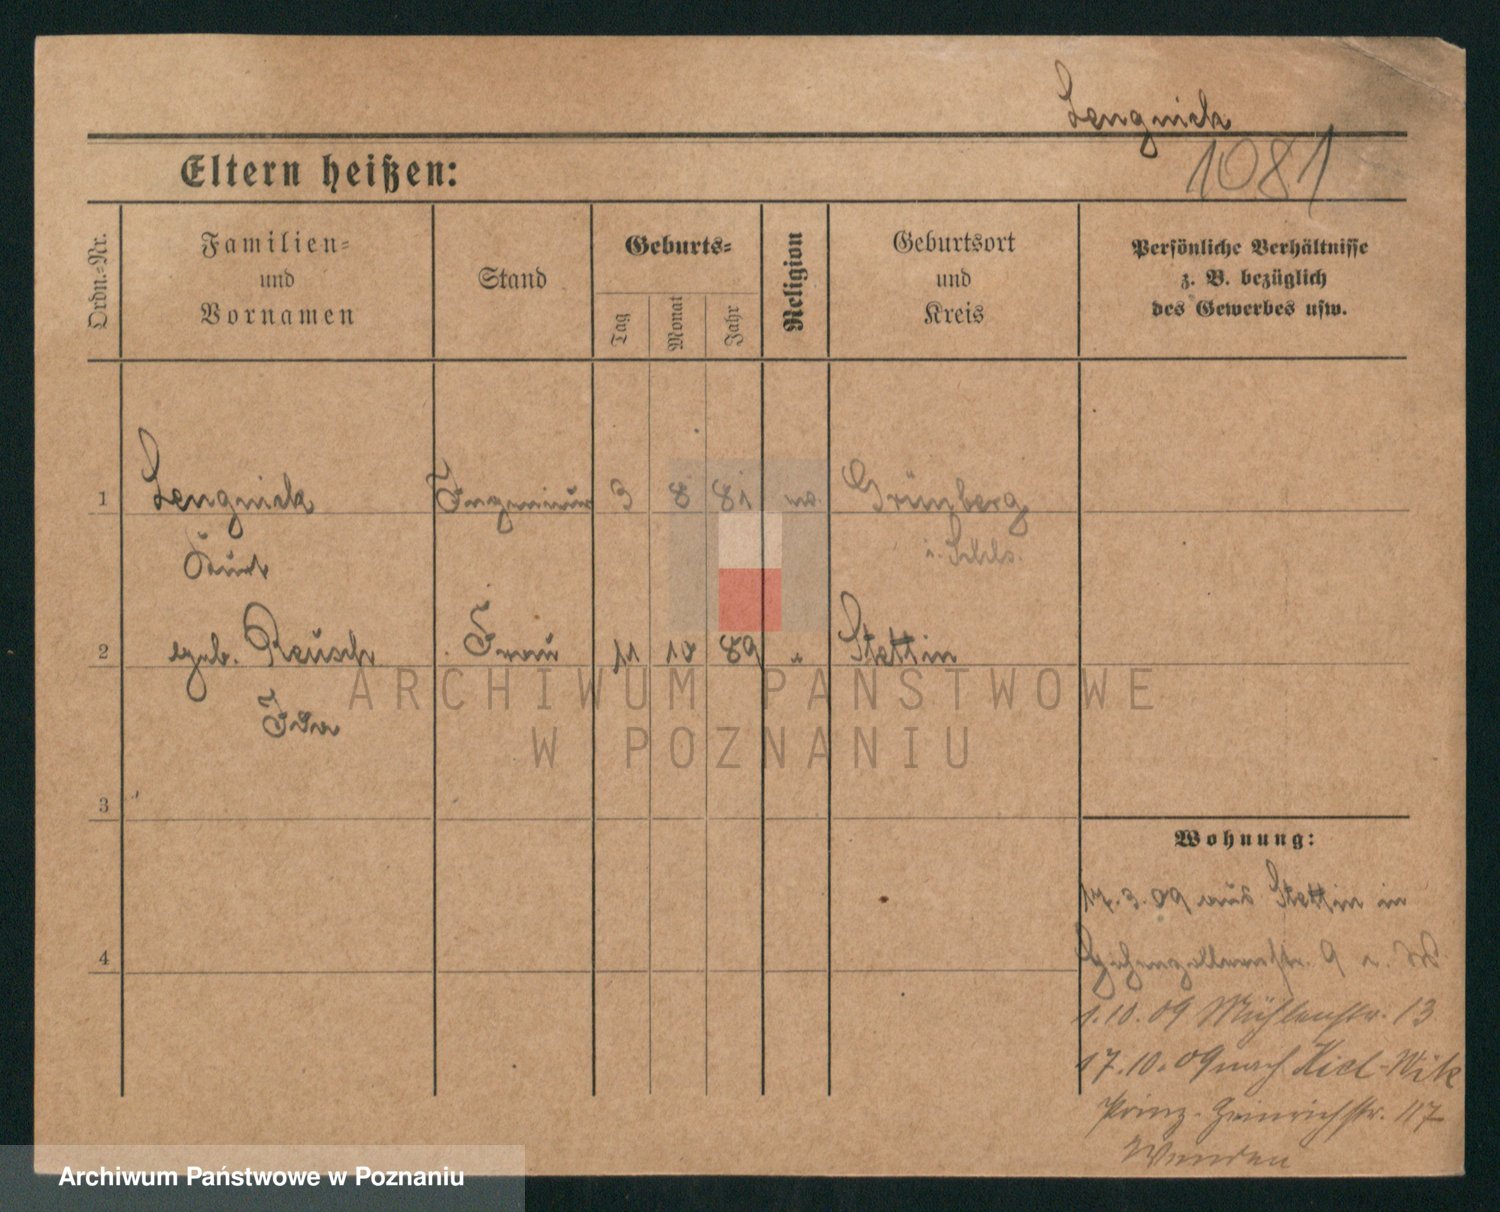 Lengnick
1081
Eltern heißen:
Ordn.-Nr.
Familien-
und
Vornamen
Stand
Geburts-
Tag
Monat
Jahr
Religion
Geburtsort
und
Kreis
Persönliche Verhältnisse
z. B. bezüglich
des Gewerbes usw.
1 Lengnick Ingenieur 3 8 81 Grünberg
Kurt i. Schls.
2 geb. Reusch Frau 11 10 89 " Stettin
Ida
3
4
Wohnung:
17.3.09 aus Stettin in
Hohenzollernstr. 9
1.10.09 Mühlenstr. 13
17.10.09 nach Kiel-Wik
Prinz-Heinrichstr. 117
Wenden
ARCHIWUM PAŃSTWOWE
W POZNANIU
Archiwum Państwowe w Poznaniu